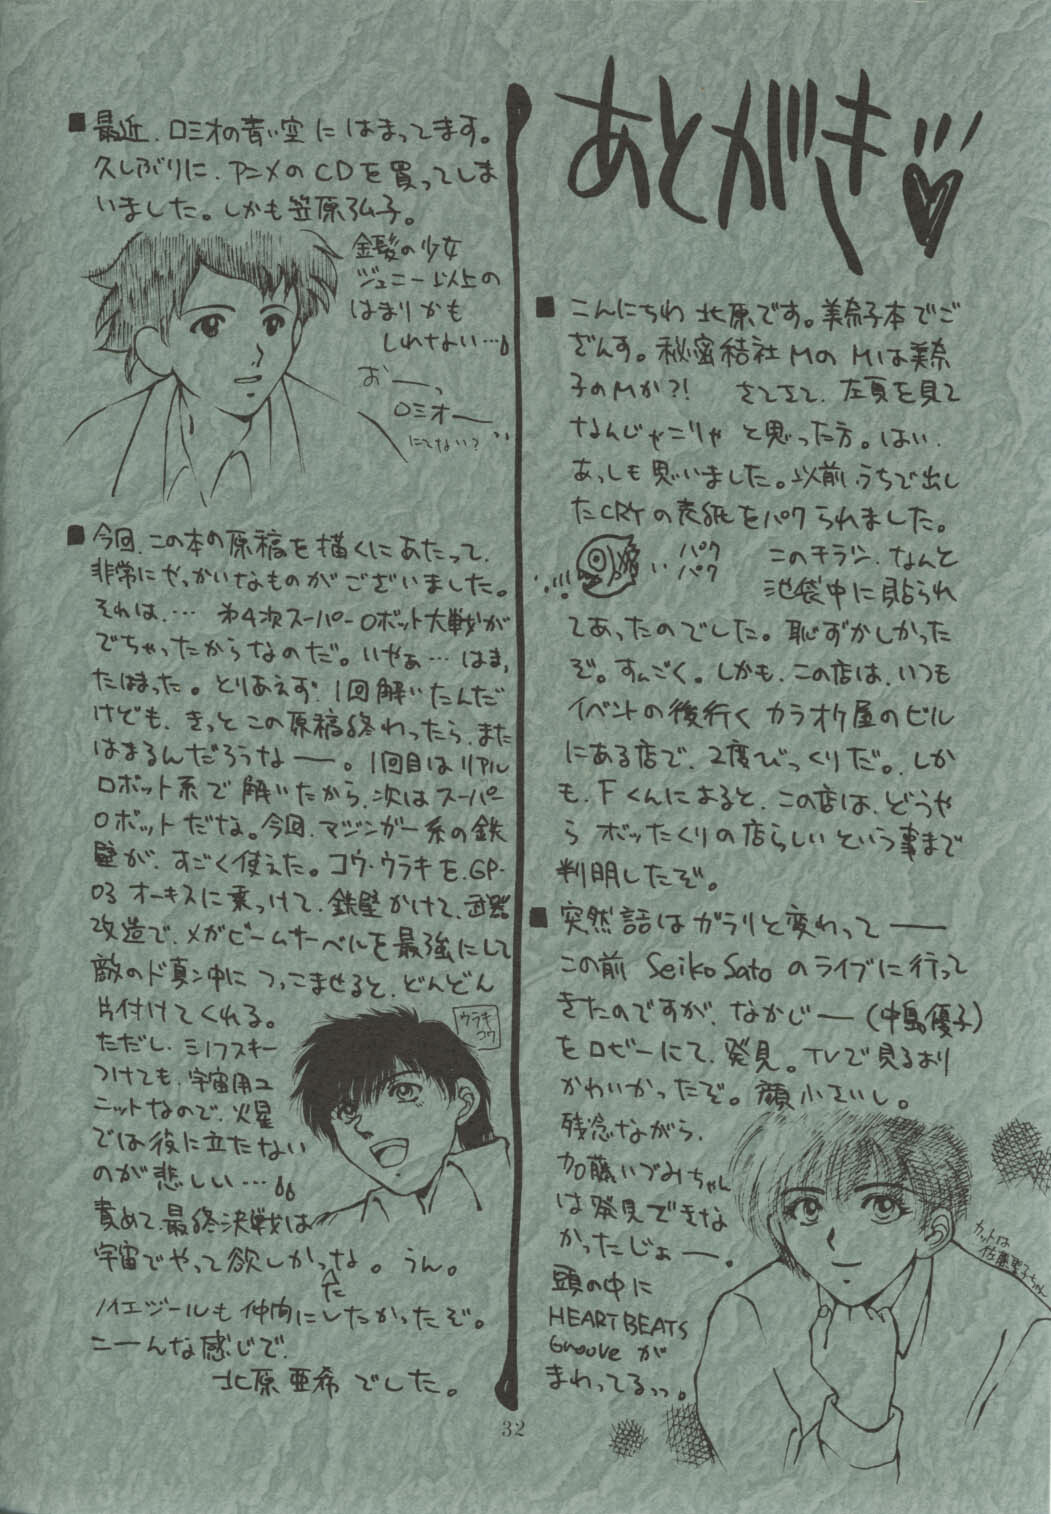 あとがき
■こんにちわ 北原です。美奈子本でご
ざんす。秘密結社MのMは美奈
子のMか?! さてさて、左頁を見て
なんじゃこりゃと思った方。はい、
あっしも思いました。以前うちで出し
たCRYの表紙をパクられました。
パク
パク
このチラシ、なんと
池袋中に貼られ
てあったのでした。恥ずかしかった
ぞ。すんごく。しかも、この店は、いつも
イベントの後行くカラオケ屋のビル
にある店で、2度びっくりだ。しか
も、Fくんによると、この店は、どうや
らボッたくりの店らしいという事まで
判明したぞ。
■突然話はガラリと変わって――
この前 Seiko Sato のライブに行って
きたのですが、なかじー(中島優子)
をロビーにて、発見。TVで見るより
かわいかったぞ。顔小さいし。
残念ながら、
加藤いづみちゃん
は発見できな
かったじょー。
頭の中に
HEART BEATS
Grooveが
まわってるっっ。
カットは
佐藤聖子ちゃん
■最近、ロミオの青い空にはまってます。
久しぶりに、アニメのCDを買ってしま
いました。しかも笠原弘子。
金髪の少女
ジェニー以上の
はまりかも
しれない…
おーっ
ロミオー
にてない?
■今回、この本の原稿を描くにあたって、
非常にやっかいなものがございました。
それは、… 第4次スーパーロボット大戦が
でちゃったからなのだ。いやぁ…はまっ
たはまった。とりあえず、1回解いたんだ
けども、きっとこの原稿終わったら、また
はまるんだろうなー。1回目はリアル
ロボット系で解いたから、次はスーパー
ロボットだな。今回、マジンガー系の鉄
壁が、すごく使えた。コウ・ウラキを、GP-
03オーキスに乗っけて、鉄壁かけて、武器
改造で、メガビームサーベルを最強にして
敵のド真ン中につっこませると、どんどん
片付けてくれる。
ただし、ミノフスキー
つけても、宇宙用ユ
ニットなので、火星
では役に立たない
のが悲しい…
責めて、最終決戦は
宇宙でやって欲しかったな。うん。
ノイエジールも仲間にしたかったぞ。
こーんな感じで、
北原亜希でした。
ウラキ
コウ
32